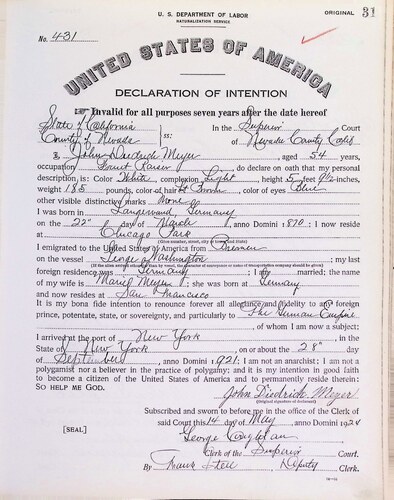 U. S. DEPARTMENT OF LABOR
NATURALIZATION SERVICE
ORIGINAL 31
No. 431
UNITED STATES OF AMERICA
DECLARATION OF INTENTION
Invalid for all purposes seven years after the date hereof
State of California
County of Nevada ss:
In the Superior Court
of Nevada County Calif
I, John Diedrich Meyer, aged 54 years,
occupation Fruit, do declare on oath that my personal
description is: Color White, complexion Light, height 5 feet 9½ inches,
weight 185 pounds, color of hair Lt Brown, color of eyes Blue
other visible distinctive marks None
I was born in Germany
on the 22" day of March, anno Domini 1870; I now reside
at Chicago Park
(Give number, street, city or town, and state)
I emigrated to the United States of America from Bremen
on the vessel George Washington; my last
(If the alien arrived otherwise than by vessel, the character of conveyance or name of transportation company should be given)
foreign residence was Germany; I am married; the name
of my wife is Marie Meyer; she was born at Germany
and now resides at San Francisco
It is my bona fide intention to renounce forever all allegiance and fidelity to any foreign
prince, potentate, state, or sovereignty, and particularly to The German Empire
, of whom I am now a subject;
I arrived at the port of New York, in the
State of New York, on or about the 28" day
of September, anno Domini 1921; I am not an anarchist; I am not a
polygamist nor a believer in the practice of polygamy; and it is my intention in good faith
to become a citizen of the United States of America and to permanently reside therein:
SO HELP ME GOD.
John Diedrich Meyer
(Original signature of declarant)
Subscribed and sworn to before me in the office of the Clerk of
[SEAL] said Court this 14 day of May, anno Domini 1924
George Coughlan
Clerk of the Superior Court.
By Frank Steel, Deputy Clerk.